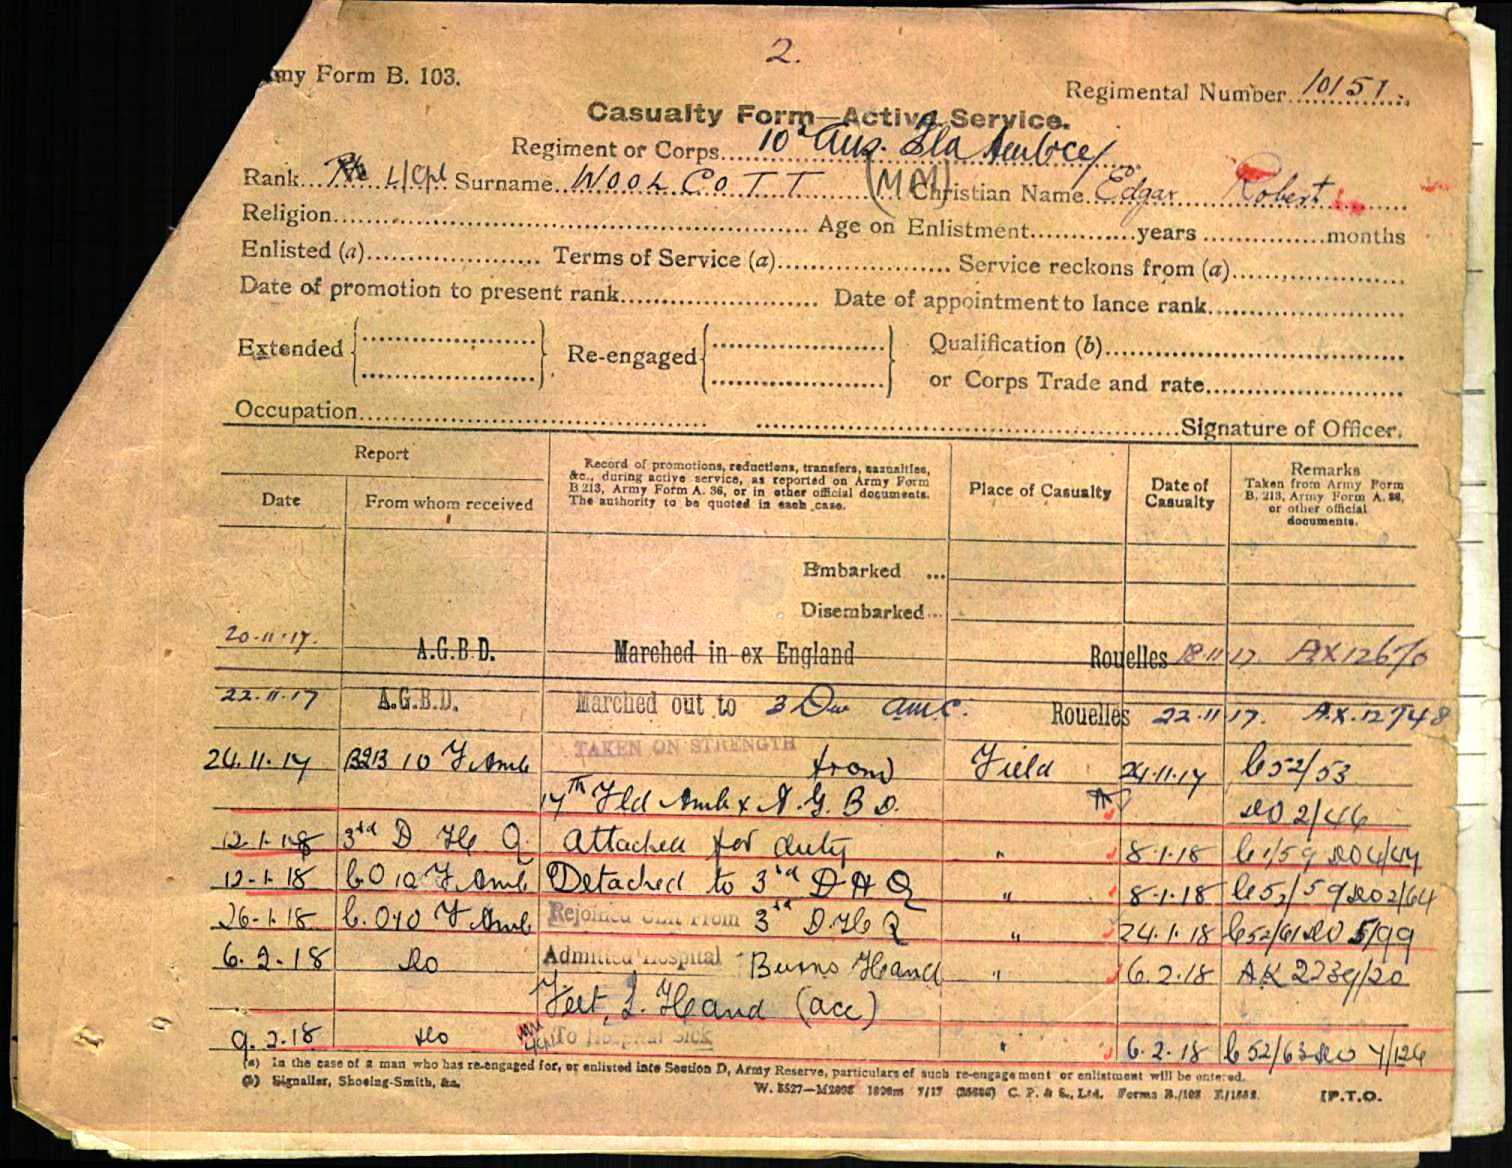 2.
my Form B. 103.
Regimental Number 10151.
Casualty Form—Active Service.
Regiment or Corps 10th Aus. Fld Ambce
Rank Pte L/Cpl Surname WOOLCOTT (MM) Christian Name Edgar Robert
Religion Age on Enlistment years months
Enlisted (a) Terms of Service (a) Service reckons from (a)
Date of promotion to present rank Date of appointment to lance rank
Extended Re-engaged Qualification (b)
or Corps Trade and rate
Occupation Signature of Officer.
Report
Date From whom received
Record of promotions, reductions, transfers, casualties,
&c., during active service, as reported on Army Form
B 213, Army Form A. 36, or in other official documents.
The authority to be quoted in each case.
Place of Casualty
Date of
Casualty
Remarks
Taken from Army Form
B. 213, Army Form A. 36,
or other official
documents.
Embarked ...
Disembarked...
20.11.17. A.G.B.D. Marched in ex England Rouelles 18.11.17. AX12670
22.11.17 A.G.B.D. Marched out to 3 Div AMC. Rouelles 22.11.17. AX.12748
TAKEN ON STRENGTH
24.11.17 B213 10 F Amb from Field 24.11.17 C52/53
17th Fld Amb x A.G.B.D. DO 2/46
12.1.18 3rd D H Q. Attached for duty " 8.1.18 DO4/47
12.1.18 CO 10 F Amb Detached to 3rd D H Q " 8.1.18 C52/59 DO2/64
26.1.18 C.O 10 F Amb Rejoined Unit From 3rd D.H Q " 24.1.18 C52/61 DO 5/99
6.2.18 Do Admitted Hospital Burns Hand " 6.2.18 AK 2239/20
Feet, L. Hand (acc)
9.2.18 Do To Hospital Sick " 6.2.18 C52/63 DO 7/126
(a) In the case of a man who has re-engaged for, or enlisted into Section D, Army Reserve, particulars of such re-engagement or enlistment will be entered.
(b) Signaller, Shoeing-Smith, &c.
W. 8527—M2098 1000m 7/17 C. P. & S., Ltd. Forms B./103 E/1552.
[P.T.O.